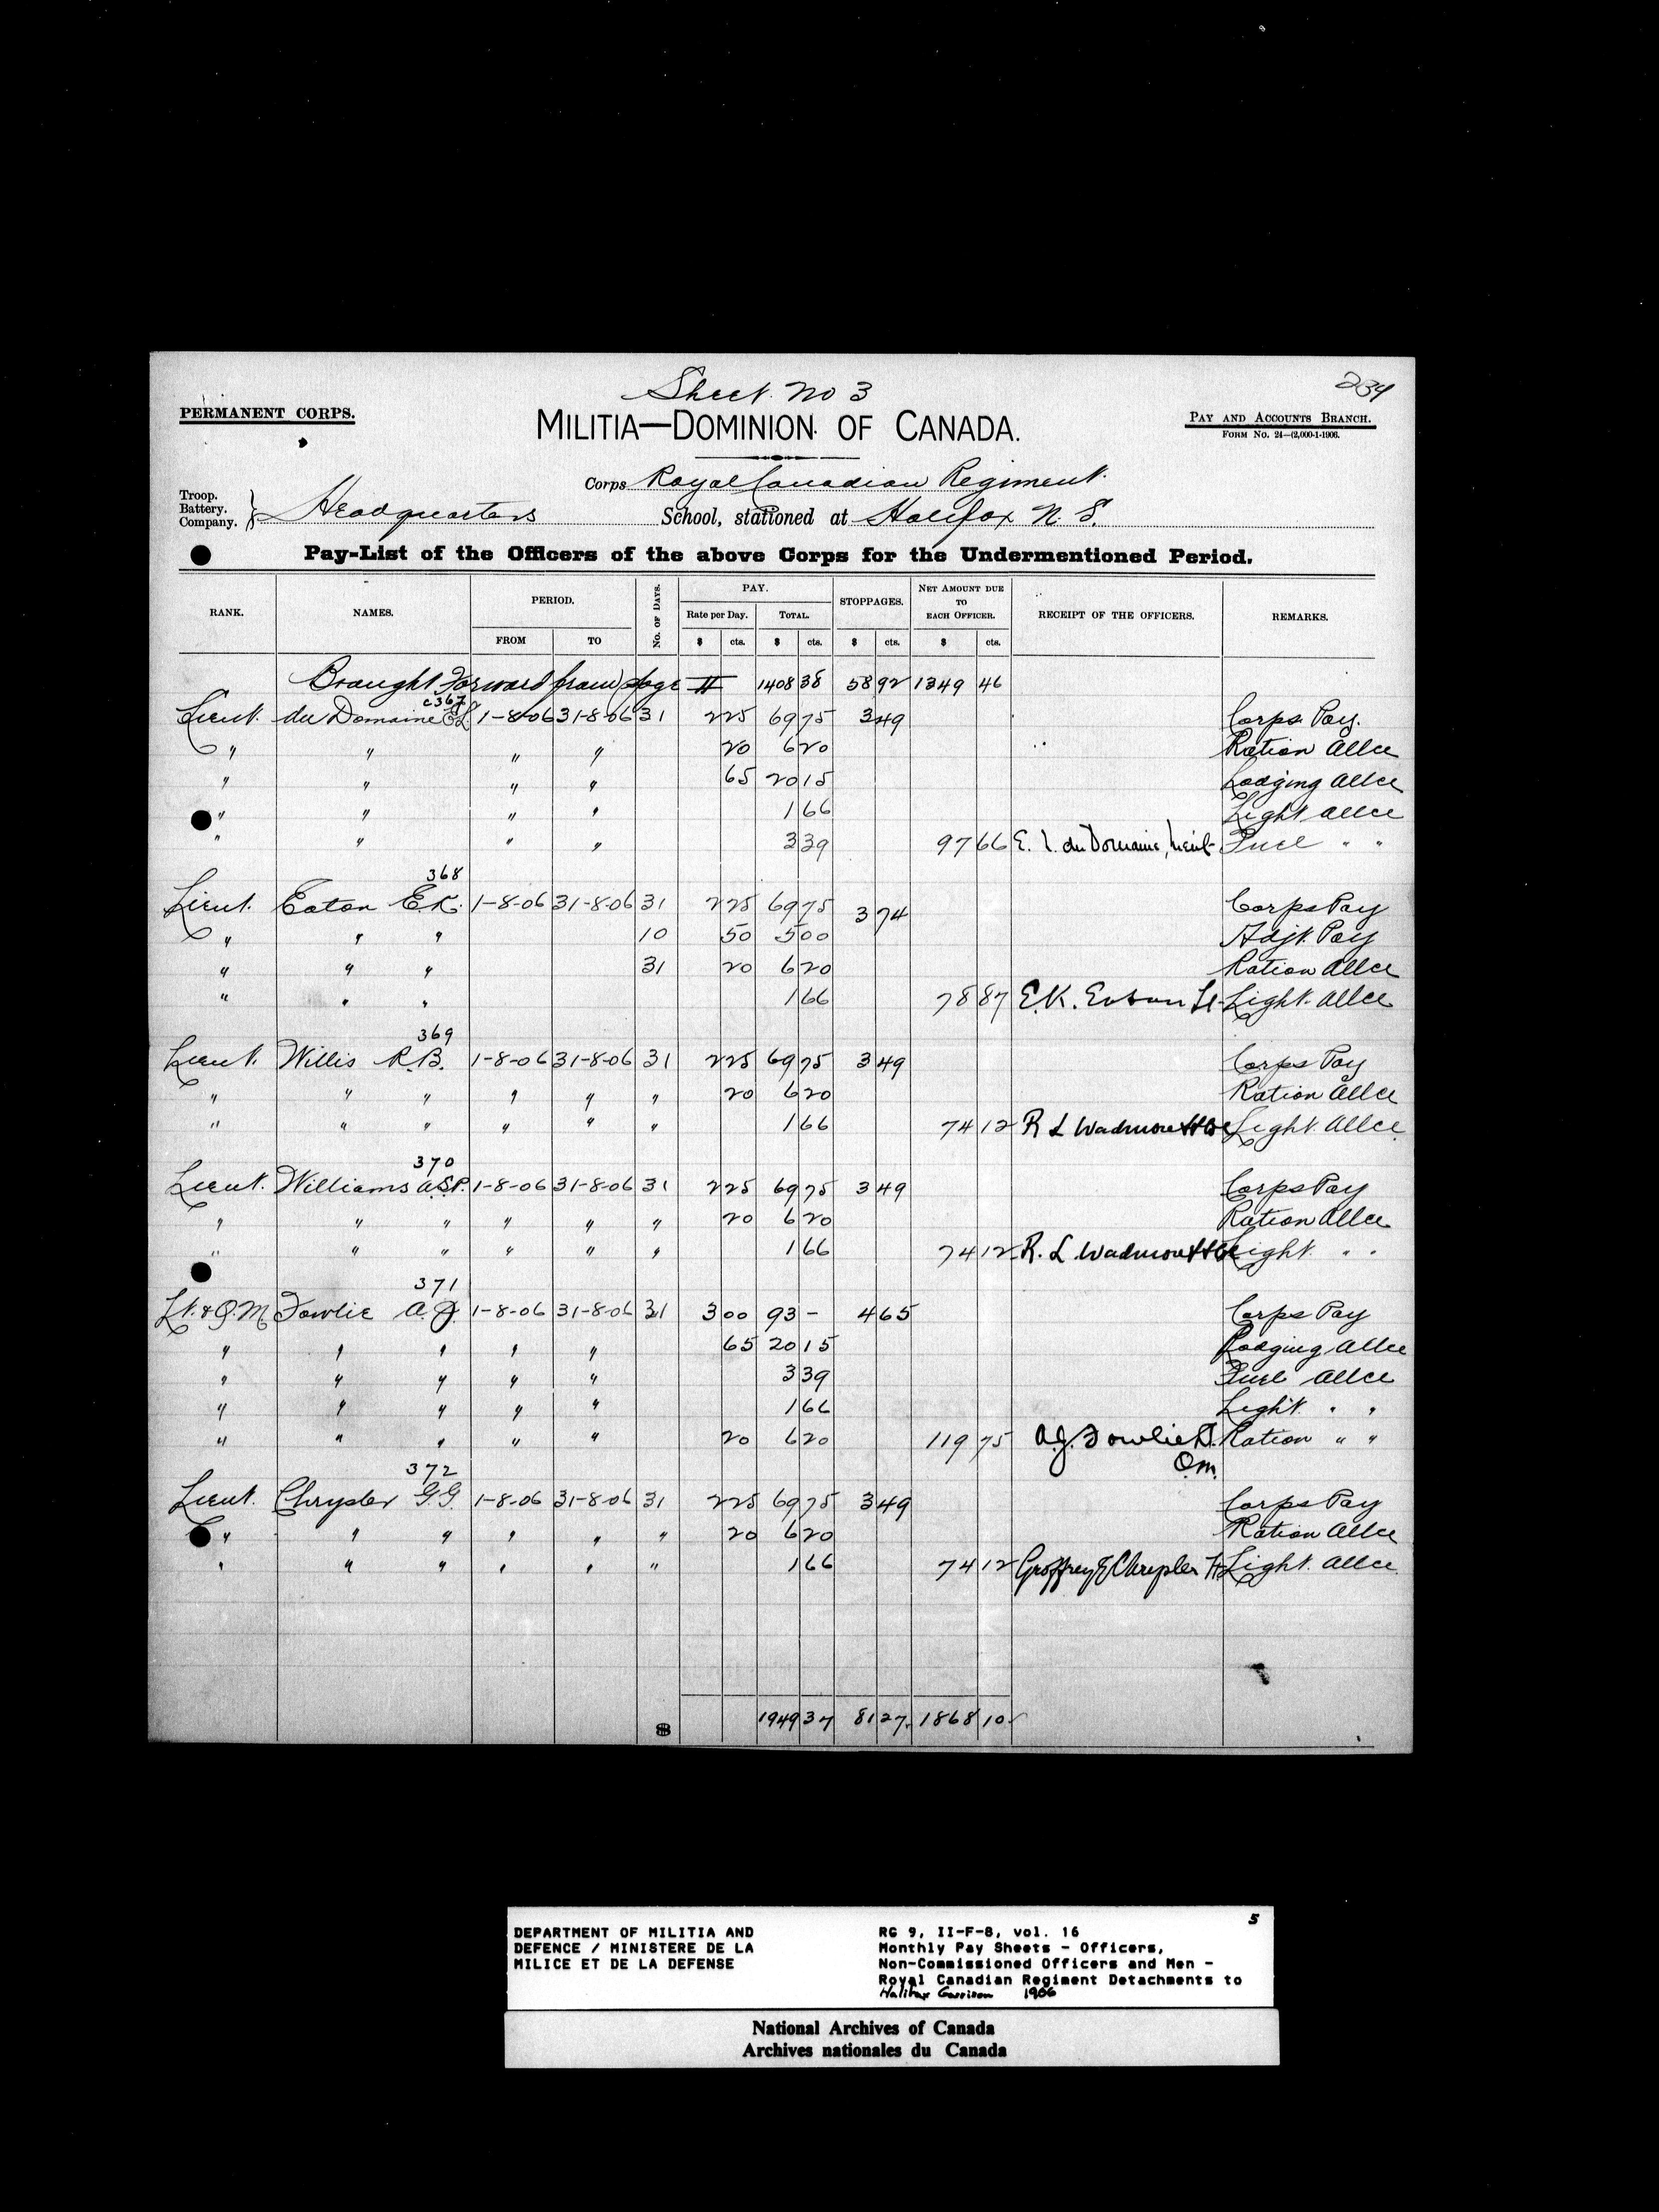 Sheet No 3
234
PERMANENT CORPS.
MILITIA—DOMINION OF CANADA.
PAY AND ACCOUNTS BRANCH.
FORM No. 24—(2,000-1-1906.
Corps Royal Canadian Regiment.
Troop. Battery. Company. } Headquarters School, stationed at Halifax N. S.
Pay-List of the Officers of the above Corps for the Undermentioned Period.
RANK. NAMES. PERIOD. No. of Days. PAY. STOPPAGES. NET AMOUNT DUE TO EACH OFFICER. RECEIPT OF THE OFFICERS. REMARKS.
Rate per Day. TOTAL.
FROM TO $ cts. $ cts. $ cts. $ cts.
Brought Forward from page II 1408 38 58 92 1349 46
c367
Lieut. du Domaine E L 1-8-06 31-8-06 31 2 25 69 75 3 49 Corps Pay.
" " " " 20 6 20 Ration Allce
" " " " 65 20 15 Lodging Allce
" " " " 1 66 Light Allce
" " " " 3 39 97 66 E. L. du Domaine, Lieut- Fuel " "
368
Lieut. Eaton E.K. 1-8-06 31-8-06 31 2 25 69 75 3 74 Corps Pay
" " " 10 50 5 00 Adjt. Pay
" " " 31 20 6 20 Ration Allce
" " " 1 66 78 87 E.K. Eaton Lt- Light Allce
369
Lieut. Willis R.B. 1-8-06 31-8-06 31 2 25 69 75 3 49 Corps Pay
" " " " " " 20 6 20 Ration Allce
" " " " " " 1 66 74 12 R L Wadmore Light Allce
370
Lieut. Williams A.S.P. 1-8-06 31-8-06 31 2 25 69 75 3 49 Corps Pay
" " " " " " 20 6 20 Ration Allce
" " " " " " 1 66 74 12 R. L Wadmore Light " "
371
Lt. & Q.M. Fowlie A. J. 1-8-06 31-8-06 31 3 00 93 - 4 65 Corps Pay
" " " " " 65 20 15 Lodging Allce
" " " " " 3 39 Fuel Allce
" " " " " 1 66 Light " "
" " " " " 20 6 20 119 75 A.J. Fowlie Lt. Ration " "
Q.M.
372
Lieut. Chrysler G.G. 1-8-06 31-8-06 31 2 25 69 75 3 49 Corps Pay
" " " " " " 20 6 20 Ration Allce
" " " " " " 1 66 74 12 Geoffrey G Chrysler Lt Light Allce
1949 37 81 27 1868 10
DEPARTMENT OF MILITIA AND
DEFENCE / MINISTERE DE LA
MILICE ET DE LA DEFENSE
5
RG 9, II-F-8, vol. 16
Monthly Pay Sheets - Officers,
Non-Commissioned Officers and Men -
Royal Canadian Regiment Detachments to
Halifax Garrison 1906
National Archives of Canada
Archives nationales du Canada